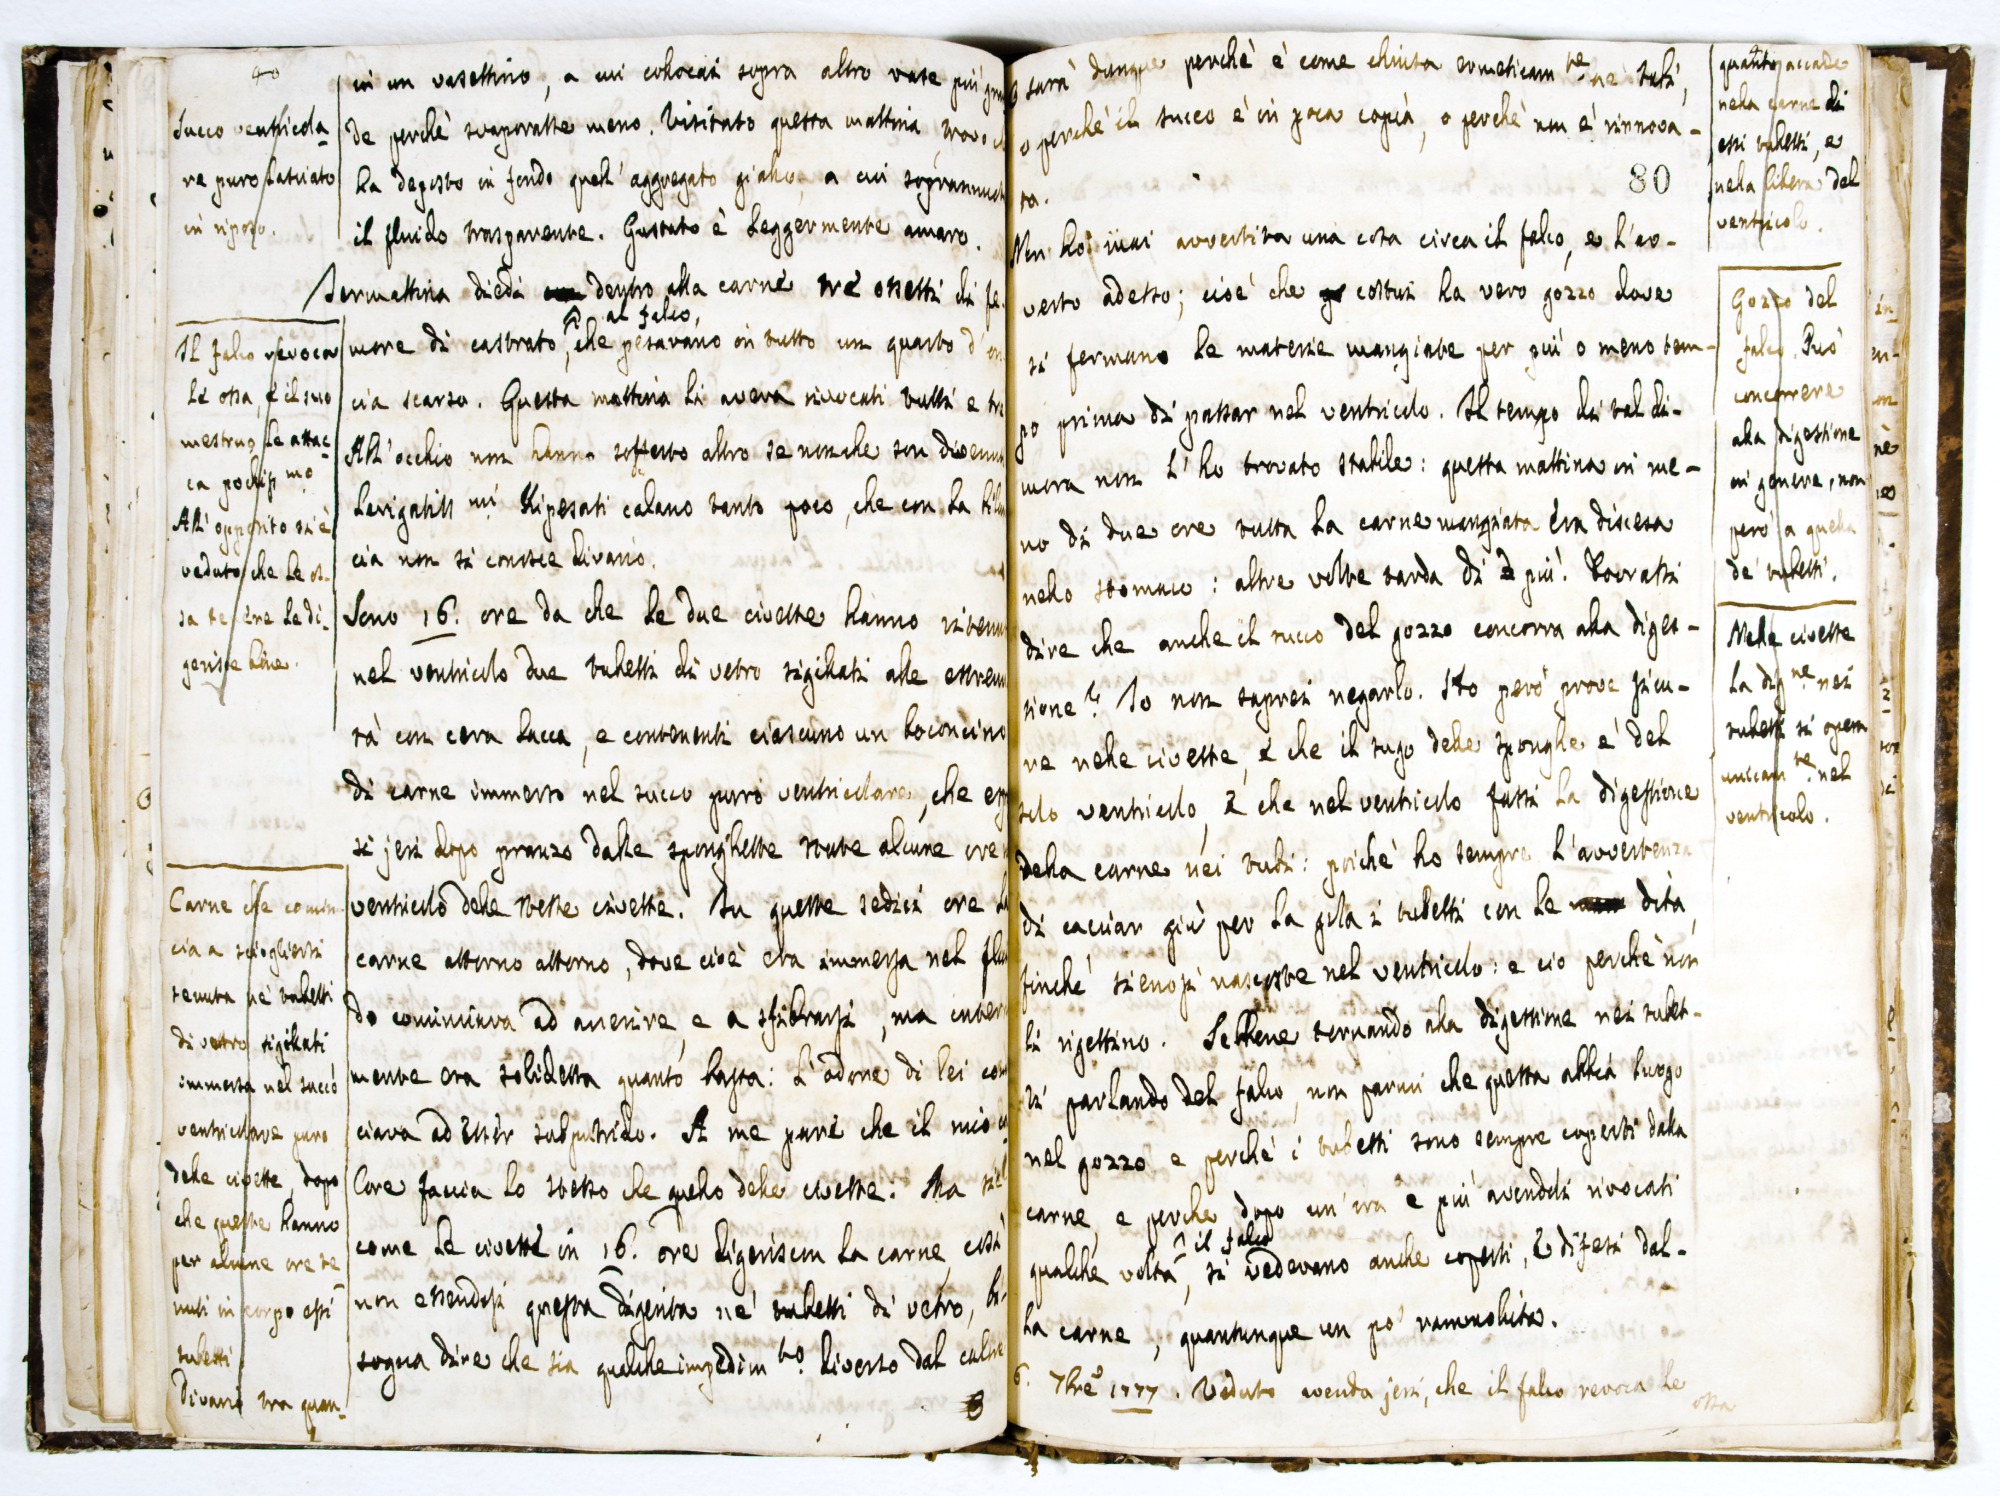 40
Succo ventricola-
re puro lasciato
in riposo.
Il falco rivoca
le ossa, e il suo
mestruo le attac-
ca pochissmo
All' opposito si è
veduto che le os-
sa tenere le di-
gerisce bene.
Carne che comin-
cia a sciogliersi
tenuta ne' tubetti
di vetro sigillati
immersa nel succo
ventricolare puro
delle civette, dopo
che queste hanno
per alcune ore te
nuti in corpo essi
tubetti.
Divario tra quan-
in un vasettino, a cui collocai sopra altro vase più gran
de perchè svaporasse meno. Visitato questa mattina trovo
ha deposto in fondo quell' aggregato giallo, a cui soprannuota
il fluido trasparente. Gustato è leggermente amaro.
Jermattina diedi dentro alla carne tre ossetti di fe
more di castrato, al falco, che pesavano in tutto un quarto d' on
cia scarso. Questa mattina li aveva rivocati tutti e tre
All' occhio non hanno sofferto altro se non che son divenuti
levigatissmi. Ripesati calano tanto poco, che con la bilan
cia non si conosce divario.
Sono 16. ore da che le due civette hanno ritenuto
nel ventricolo due tubetti di vetro sigillati alle estremi
tà con cera lacca, e contenenti ciascuno un bocconcino
di carne immerso nel succo puro ventricolare, che
si jeri dopo pranzo dalle spunghette state alcune ore
ventricolo delle stesse civette. In queste sedici ore la
carne attorno attorno, dove cioè era immersa nel flui
do cominciava ad annerire, e a sfibrarsi, ma interna
mente era soliduccia quanto basta: L'odore di lei comin
ciava ad esser subputrido. A me pare che il mio ca
lore faccia lo stesso che quello delle civette. Ma
come le civette in 16. ore digeriscon la carne così
non essendosi questa digerita ne' tubetti di vetro, bi-
sogna dire che sia qualche impedimto diverso dal calore
sarà dunque perchè è come chiusa ermeticamte ne' tubi,
o perchè il succo è in poca copia, o perchè non è rinnova-
to.
80
Non ho mai avvertita una cosa circa il falco, e l'av-
verto adesso; cioè che costui ha vero gozzo dove
si fermano le materie mangiate per più o meno tem-
po prima di passar nel ventricolo. Il tempo di tal di-
mora non l'ho trovato stabile: questa mattina in me-
no di due ore tutta la carne mangiata era discesa
nello stomaco: altre volte tarda di più. Dovrassi
dire che anche il succo del gozzo concorra alla diges-
tione? Io non saprei negarlo. Ho però prove sicu-
re nelle civette, e che il sugo delle spunghe è del
solo ventricolo, e che nel ventricolo fassi la digestione
della carne nei tubi: poichè ho sempre l'avvertenza
di cacciar giù per la gola i tubetti con le dita,
finchè sienosi nascoste nel ventricolo: e ciò perchè non
li rigettino. Sebbene tornando alla digestione nei tubet-
ti parlando del falco, non parmi che questa abbia luogo
nel gozzo e perchè i tubetti sono sempre coperti dalla
carne, e perchè dopo un'ora e più avendoli rivocati
qualche volta il falco, si vedevano anche coperti, e difesi dal-
la carne, quantunque un po' rammollita.
6. 7bre 1777. Veduto avendo jeri, che il falco revoca le
ossa
quanto accade
nella carne di
essi tubetti, e
nella libera del
ventricolo.
Gozzo del
falco. Può
concorrere
alla digestione
in genere, non
però a quella
de' tubetti.
Nelle civette
la digne nei
tubetti si opera
unicamte nel
ventricolo.